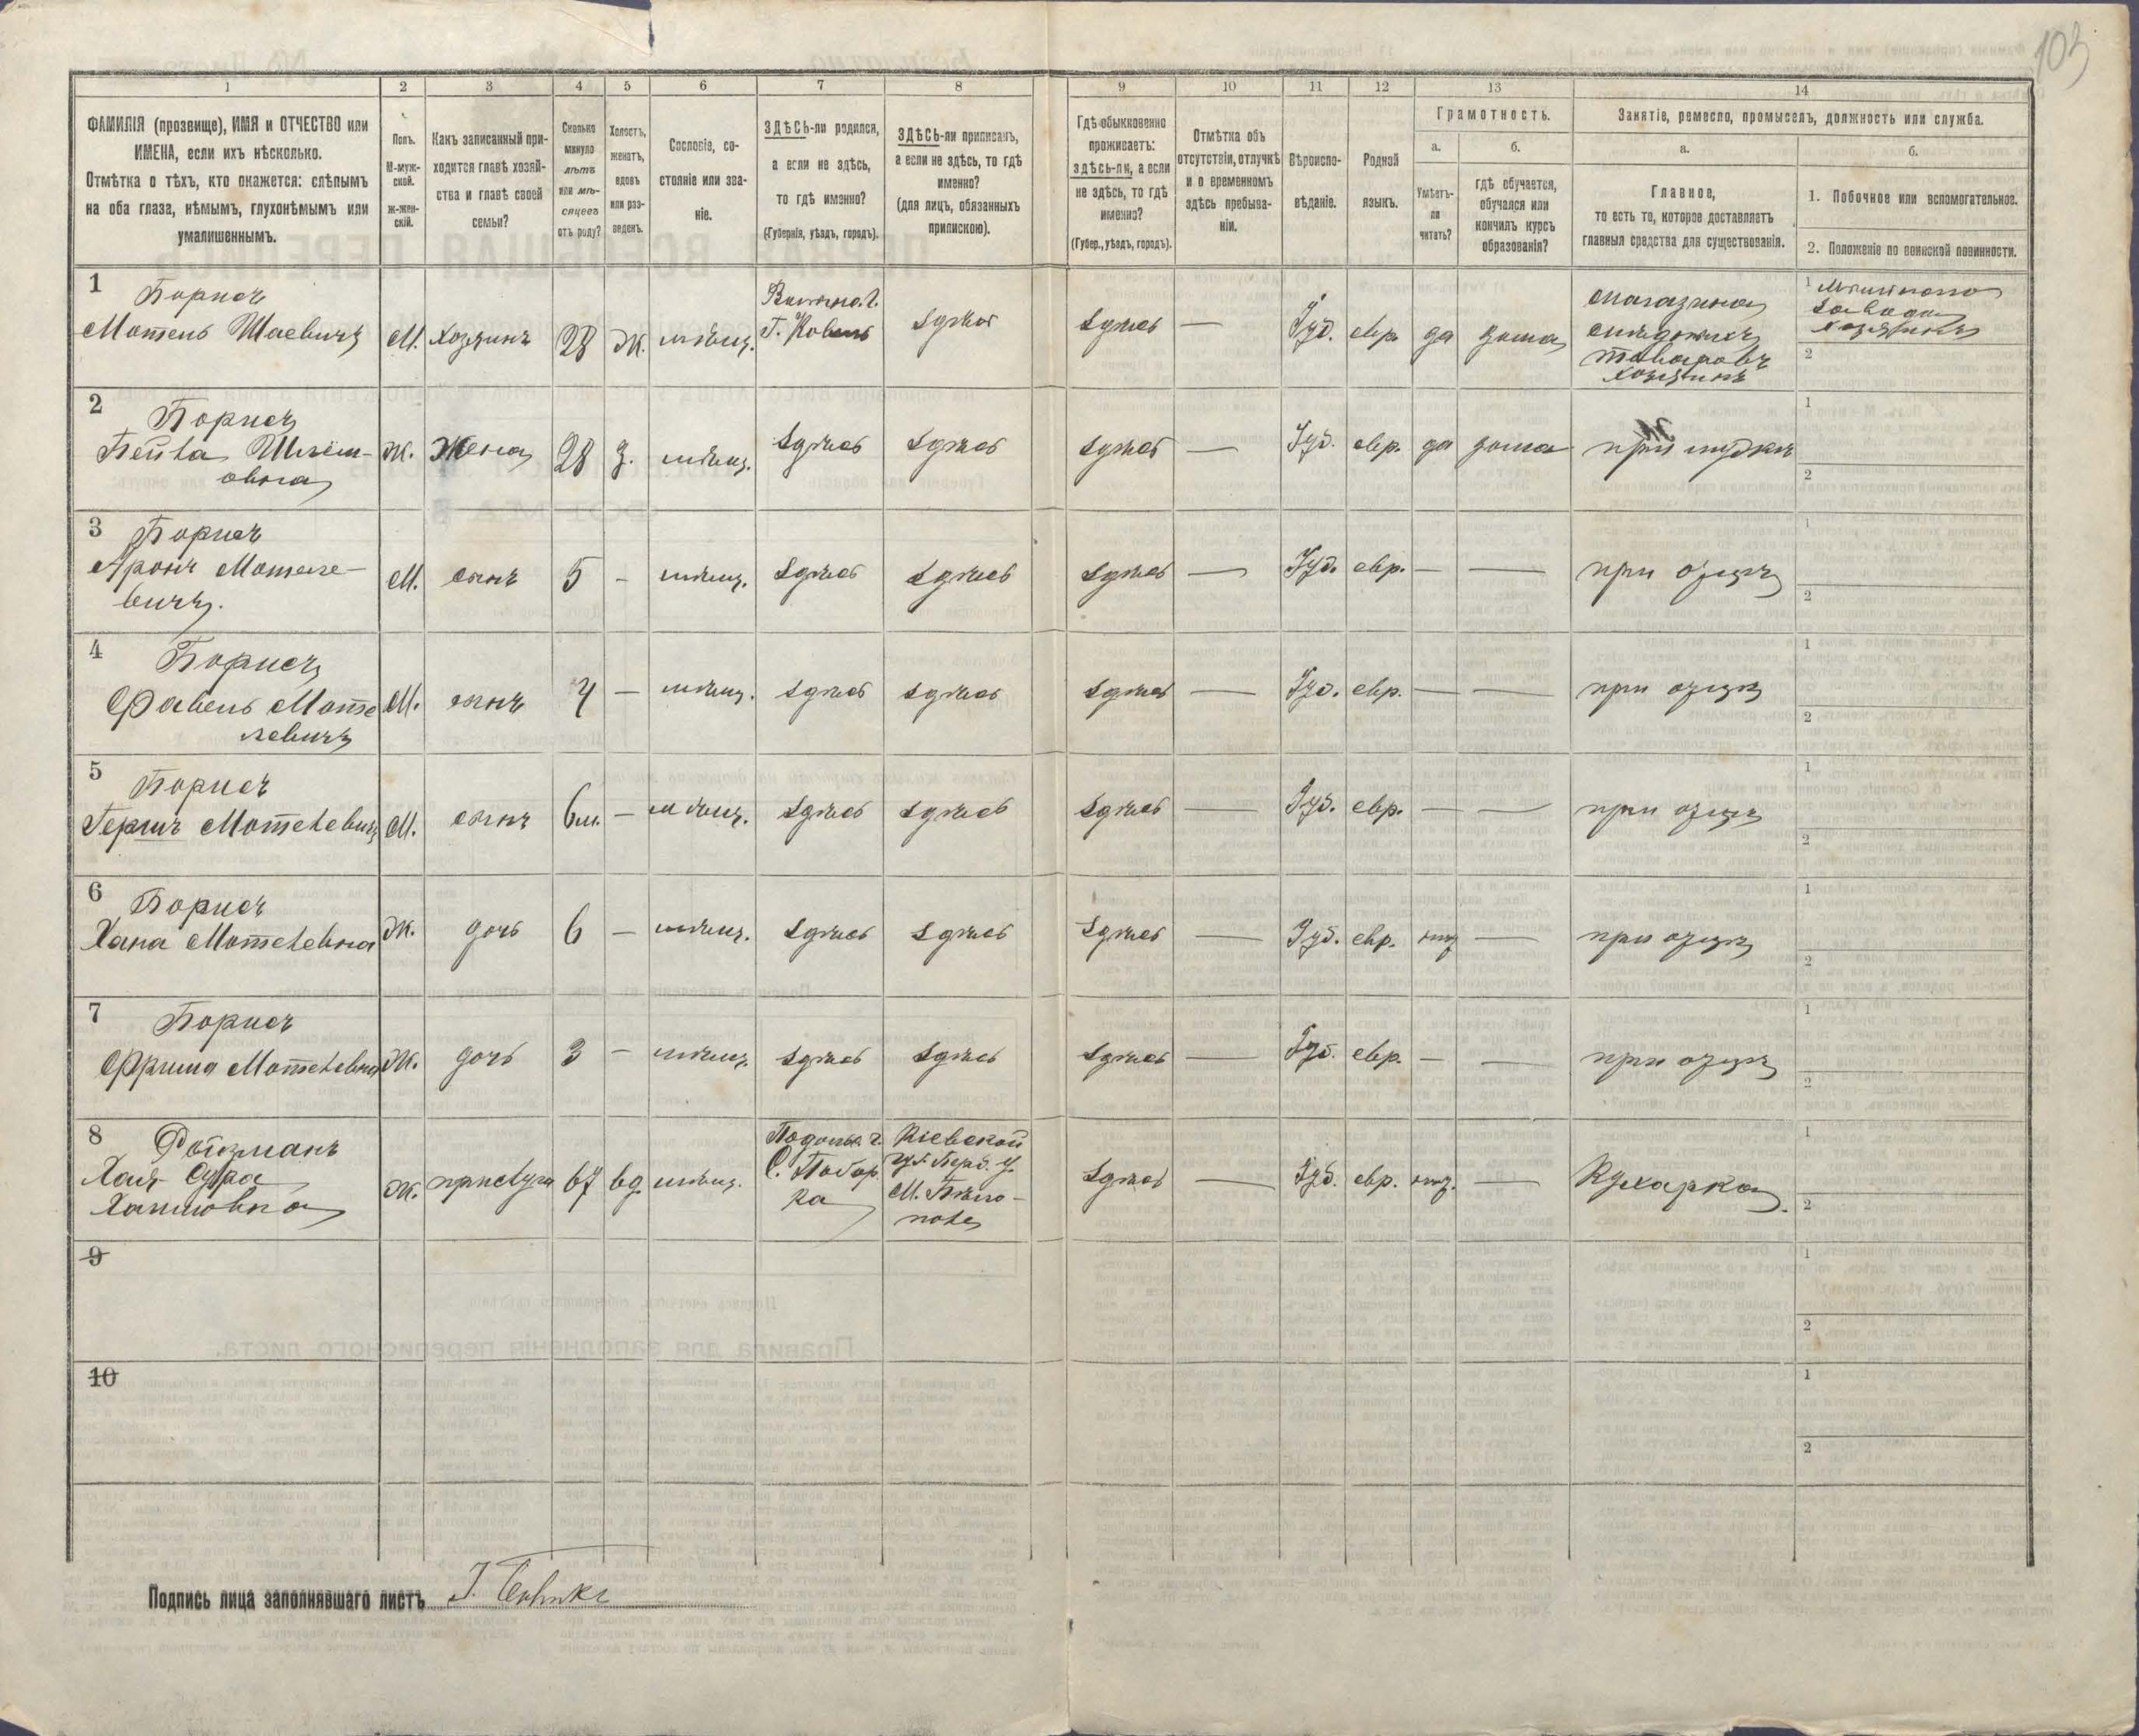 103
1
2
3
4
5
6
7
8
9
10
11
12
13
14
ФАМИЛІЯ (прозвище), ИМЯ и ОТЧЕСТВО или
ИМЕНА, если ихъ нѣсколько.
Отмѣтка о тѣхъ, кто окажется: слѣпымъ
на оба глаза, нѣмымъ, глухонѣмымъ или
умалишеннымъ.
Полъ.
М-муж-
ской.
ж-жен-
скій.
Какъ записанный при-
ходится главѣ хозяй-
ства и главѣ своей
семьи?
Сколько
минуло
лѣтъ
или мѣ-
сяцевъ
отъ роду?
Холостъ,
женатъ,
вдовъ
или раз-
веденъ.
Сословіе, со-
стояніе или зва-
ніе.
ЗДѢСЬ-ли родился,
а если не здѣсь,
то гдѣ именно?
(Губернія, уѣздъ, городъ).
ЗДѢСЬ-ли приписанъ,
а если не здѣсь, то гдѣ
именно?
(для лицъ, обязанныхъ
припискою).
Гдѣ обыкновенно
проживаетъ:
здѣсь-ли, а если
не здѣсь, то гдѣ
именно?
(Губер., уѣздъ, городъ).
Отмѣтка объ
отсутствіи, отлучкѣ
и о временномъ
здѣсь пребыва-
ніи.
Вѣроиспо-
вѣданіе.
Родной
языкъ.
Грамотность.
а.
Умѣетъ-
ли
читать?
б.
гдѣ обучается,
обучался или
кончилъ курсъ
образованія?
Занятіе, ремесло, промыселъ, должность или служба.
а.
Главное,
то есть то, которое доставляетъ
главныя средства для существованія.
б.
1. Побочное или вспомогательное.
2. Положеніе по воинской повинности.
1
Борисъ
Мотель Шаевичъ
М. хозяинъ 28 ж. мѣщ. г. Ковель здѣсь здѣсь — Іуд. евр. да дома
магазина
товаровъ
хозяинъ
завода
хозяинъ
1
2
2
Борисъ
Бейла
ж. жена 28 з. мѣщ. здѣсь здѣсь здѣсь — Іуд. евр. да дома при мужѣ
1
2
3
Борисъ
Аронъ Мотеле-
вичъ.
М. сынъ 5 – мѣщ. здѣсь здѣсь здѣсь — Іуд. евр. — — при отцѣ
1
2
4
Борисъ
Файвель Моте
левичъ
М. сынъ 4 – мѣщ. здѣсь здѣсь здѣсь — Іуд. евр. — — при отцѣ
1
2
5
Борисъ
Гершъ Мотелевичъ
М. сынъ 6м. – мѣщ. здѣсь здѣсь здѣсь — Іуд. евр. — — при отцѣ
1
2
6
Борисъ
Хана Мотелевна
ж. дочь 6 – мѣщ. здѣсь здѣсь здѣсь — Іуд. евр. нѣтъ — при отцѣ
1
2
7
Борисъ
Фрима Мотелевна
ж. дочь 3 – мѣщ. здѣсь здѣсь здѣсь — Іуд. евр. — — при отцѣ
1
2
8
Ройзманъ
Хая Сура
Хаимовна
ж. прислуга 67 вд. мѣщ.
Подольс. г.
Кіевской
здѣсь — Іуд. евр. нѣтъ. — Кухарка.
1
2
9
1
2
10
1
2
Подпись лица заполнявшаго листъ